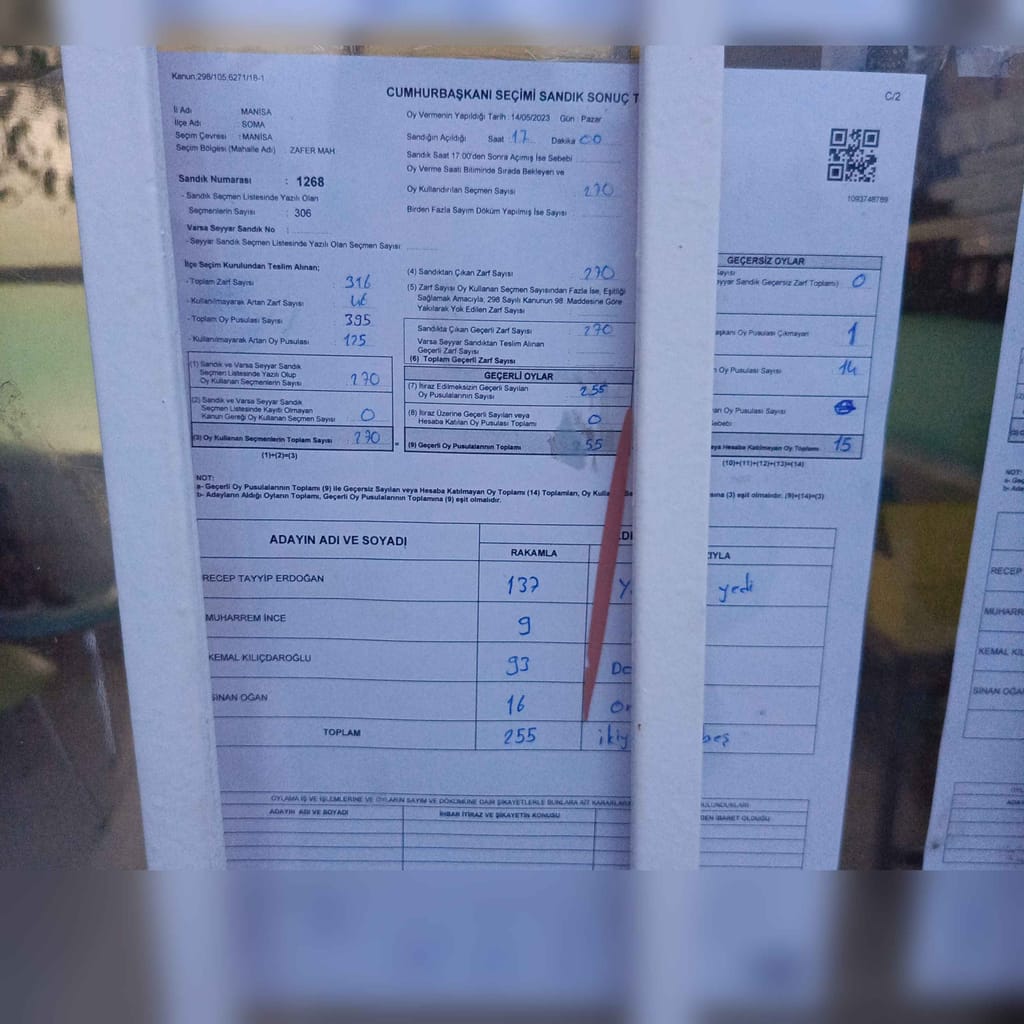 Kanun;298/105,6271/18-1
CUMHURBAŞKANI SEÇİMİ SANDIK SONUÇ T
C/2
İl Adı MANİSA
İlçe Adı SOMA
Seçim Çevresi : MANİSA
Seçim Bölgesi (Mahalle Adı) : ZAFER MAH
Oy Vermenin Yapıldığı Tarih : 14/05/2023 Gün : Pazar
Sandığın Açıldığı Saat 17 Dakika 00
Sandık Saat 17:00'den Sonra Açımış İse Sebebi
Oy Verme Saati Bitiminde Sırada Bekleyen ve
Oy Kullandırılan Seçmen Sayısı 270
Birden Fazla Sayım Döküm Yapılmış İse Sayısı
1093748789
Sandık Numarası : 1268
- Sandık Seçmen Listesinde Yazılı Olan
Seçmenlerin Sayısı : 306
Varsa Seyyar Sandık No :
- Seyyar Sandık Seçmen Listesinde Yazılı Olan Seçmen Sayısı:
İlçe Seçim Kurulundan Teslim Alınan;
- Toplam Zarf Sayısı : 316
- Kullanılmayarak Artan Zarf Sayısı : 46
- Toplam Oy Pusulası Sayısı : 395
- Kullanılmayarak Artan Oy Pusulası : 125
(1) Sandık ve Varsa Seyyar Sandık
Seçmen Listesinde Yazılı Olup
Oy Kullanan Seçmenlerin Sayısı 270
(2) Sandık ve Varsa Seyyar Sandık
Seçmen Listesinde Kayıtlı Olmayan
Kanun Gereği Oy Kullanan Seçmen Sayısı 0
(3) Oy Kullanan Seçmenlerin Toplam Sayısı 270
(1)+(2)=(3)
(4) Sandıktan Çıkan Zarf Sayısı 270
(5) Zarf Sayısı Oy Kullanan Seçmen Sayısından Fazla İse, Eşitliği
Sağlamak Amacıyla, 298 Sayılı Kanunun 98. Maddesine Göre
Yakılarak Yok Edilen Zarf Sayısı
Sandıkta Çıkan Geçerli Zarf Sayısı 270
Varsa Seyyar Sandıktan Teslim Alınan
Geçerli Zarf Sayısı
(6) Toplam Geçerli Zarf Sayısı
GEÇERLİ OYLAR
(7) İtiraz Edilmeksizin Geçerli Sayılan
Oy Pusulalarının Sayısı 255
(8) İtiraz Üzerine Geçerli Sayılan veya
Hesaba Katılan Oy Pusulası Toplamı 0
= (9) Geçerli Oy Pusulalarının Toplamı 255
GEÇERSİZ OYLAR
ayısı
eyyar Sandık Geçersiz Zarf Toplamı) 0
aşkanı Oy Pusulası Çıkmayan 1
n Oy Pusulası Sayısı 14
an Oy Pusulası Sayısı
Sebebi
eya Hesaba Katılmayan Oy Toplamı 15
(10)+(11)+(12)+(13)=(14)
NOT:
a- Geçerli Oy Pusulalarının Toplamı (9) ile Geçersiz Sayılan veya Hesaba Katılmayan Oy Toplamı (14) Toplamları, Oy Kulla Se sına (3) eşit olmalıdır. (9)+(14)=(3)
b- Adayların Aldığı Oyların Toplamı, Geçerli Oy Pusulalarının Toplamına (9) eşit olmalıdır.
ADAYIN ADI VE SOYADI
RAKAMLA
RECEP TAYYİP ERDOĞAN 137 Y yedi
MUHARREM İNCE 9
KEMAL KILIÇDAROĞLU 93 Do
SİNAN OĞAN 16 On
TOPLAM 255 ikiy beş
OYLAMA İŞ VE İŞLEMLERİNE VE OYLARIN SAYIM VE DÖKÜMÜNE DAİR ŞİKAYETLERLE BUNLARA AİT KARARLAR
ADAYIN ADI VE SOYADI İHBAR İTİRAZ VE ŞİKAYETİN KONUSU DEN İBARET OLDUĞU
NOT:
RECEP
MUHARR
KEMAL KIL
SİNAN OĞA